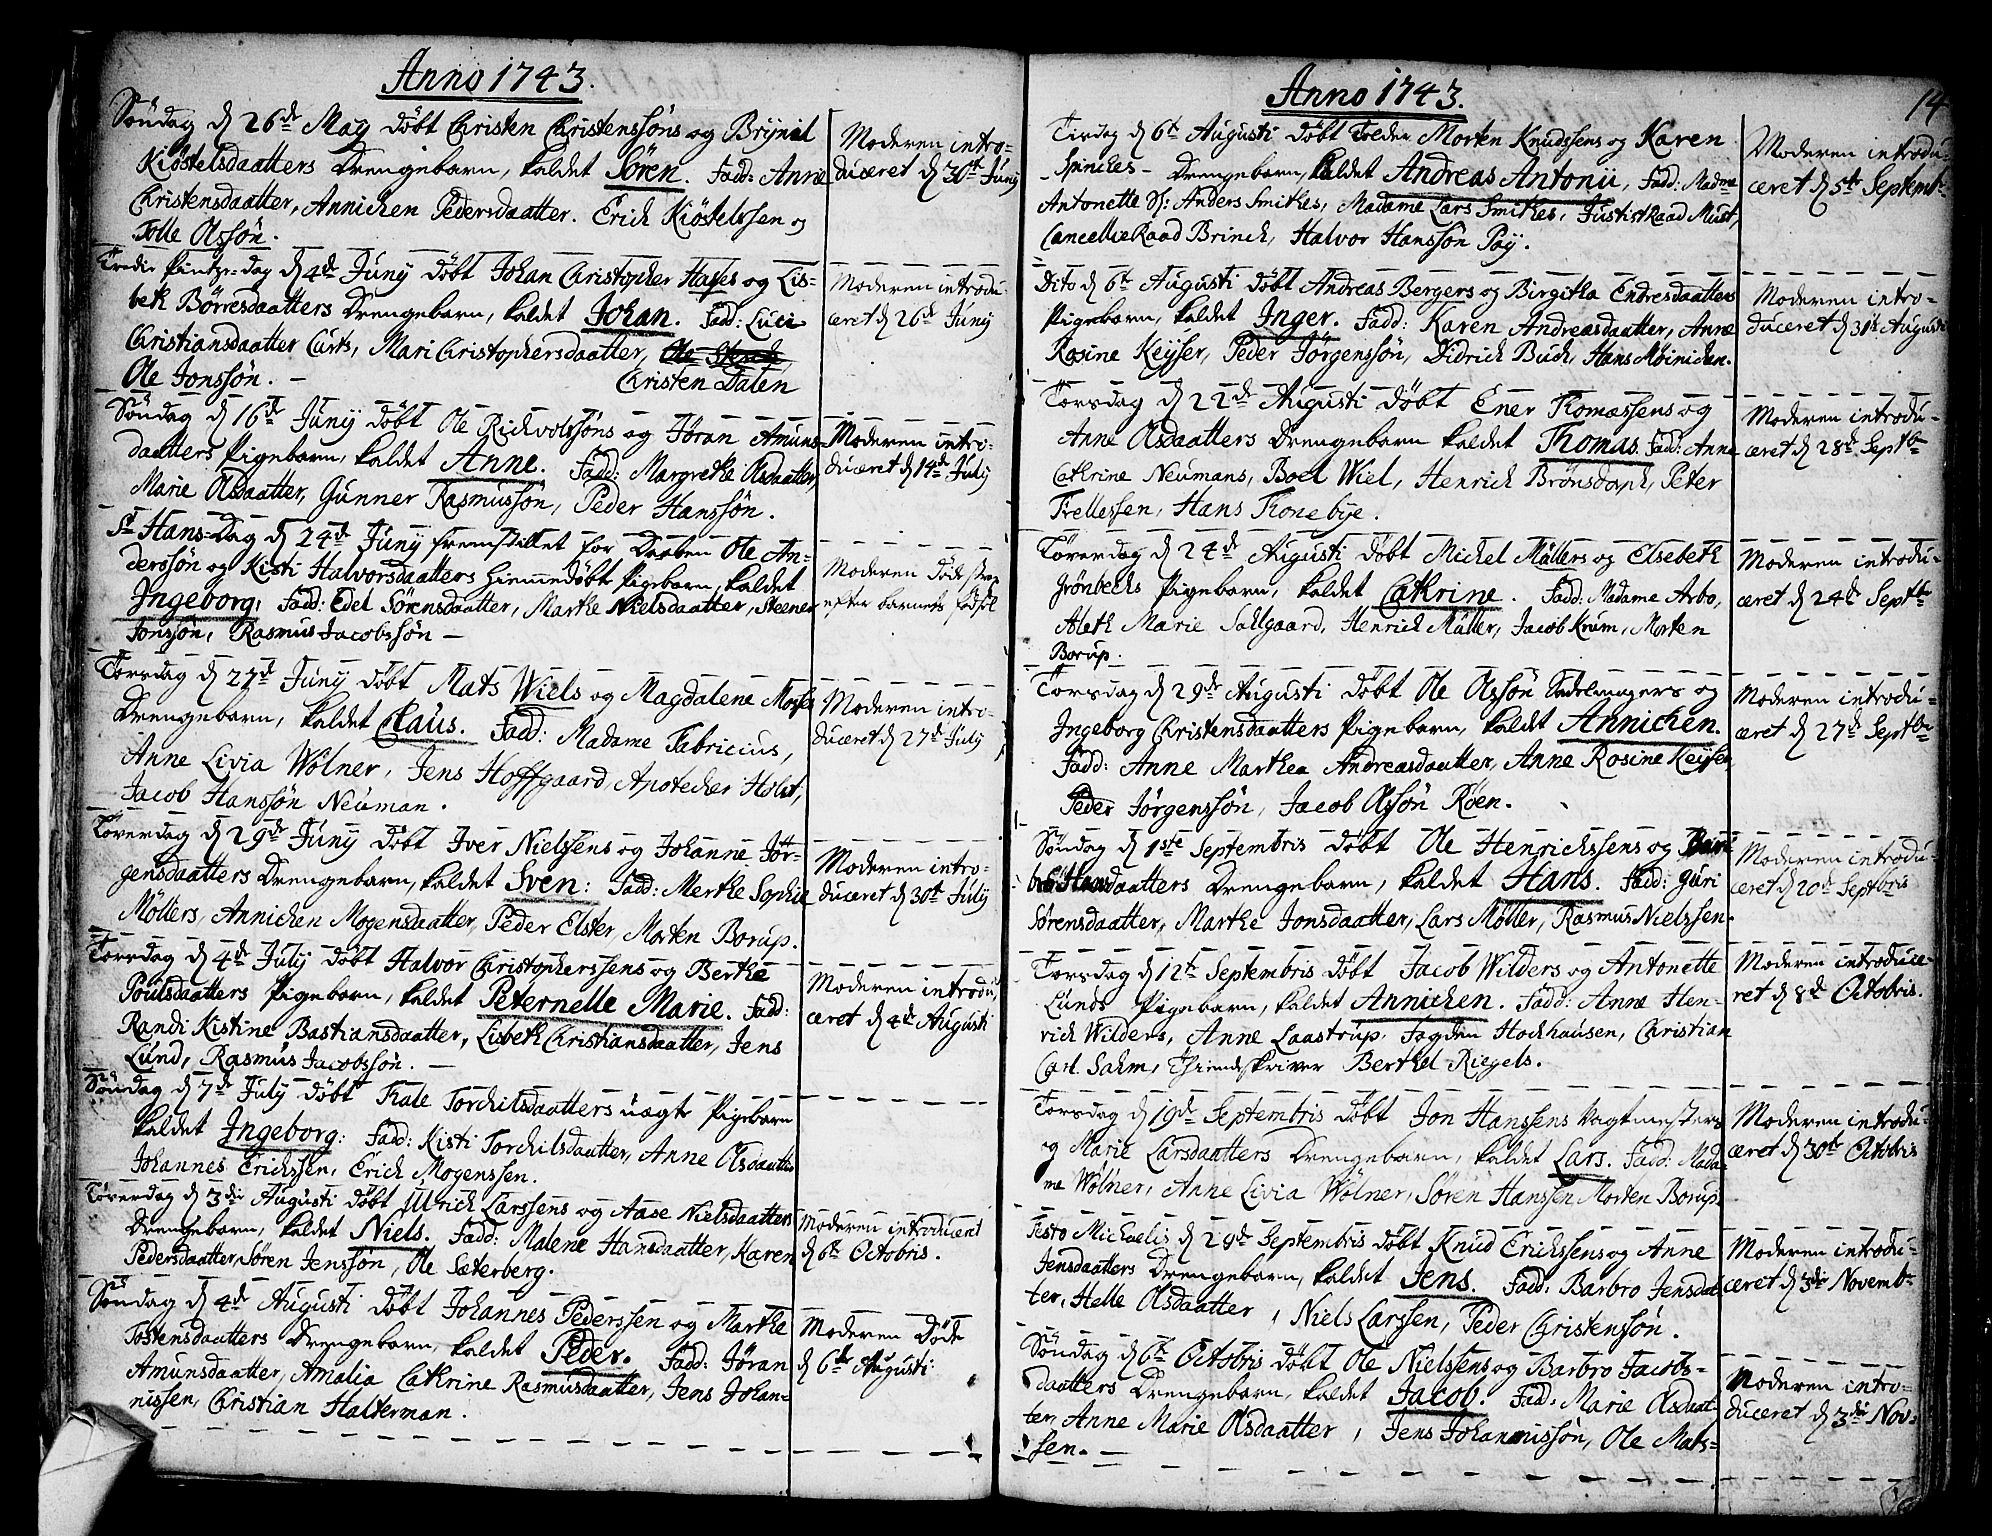 Anno 1743.
Søndag d 26de May døbt Christen Christenssøns og Brynil
Kiøstelsdaatters Drengebarn, kaldet Sören. Fadd: Anne
Christensdaatter, Annichen Pedersdaatter. Erich Kiøstelssen og
Tolle Olssøn.
Moderen intro-
duceret d 30te Juny
Tredie Pintze-dag d 4de Juny døbt Johan Christopher Hases og Lis-
beth Börresdaatters Drengebarn, kaldet Johan. Fadd: Luci
Christiansdaatter Curts, Mari Christophersdaatter, Ole
Ole Jonssøn. Christen Dalen
Moderen introdu
ceret d 26de Juny
Søndag d 16de Juny døbt Ole Richvolssøns og Jøran Amuns-
daatters Pigebarn, kaldet Anne. Fadd: Margrethe Olsdaatter,
Marie Olsdaatter, Gunner Rasmussøn, Peder Hanssøn.
Moderen intro-
duceret d 14de July
St Hans-Dag d 24de Juny fremstillet for Daaben Ole An-
derssøn og Kisti Halvorsdaatters hiemmedøbt Pigebarn, kaldet
Ingeborg: Fadd: Edel Sörensdaatter, Marthe Nielsdaatter, Steener
Jonssøn, Rasmus Jacobssøn
Moderen Døde strax
efter barnets fødsel
Torsdag d 27de Juny døbt Mats Wiels og Magdalene
Drengebarn, kaldet Claus. Fadd: Madame Fabricius,
Anne Livia Wölner, Jens Hoffgaard, Apotecher Holst,
Jacob Hanssøn Neuman.
Moderen intro-
duceret d 27de July
Løverdag d 29de Juny døbt Iver Nielssens og Johanne Jör-
gensdaatters Drengebarn, kaldet Sven: Fadd: Merthe Sophie
Möllers, Annichen Mogensdaatter, Peder Elster, Morten Borup.
Moderen intro-
duceret d 30te July
Torsdag d 4de July døbt Halvor Christopherssens og Berthe
Poulsdaatters Pigebarn, kaldet Peternelle Marie. Fadd:
Randi Kistine Bastiansdaatter, Lisbeth Christiansdaatter, Jens
Lund, Rasmus Jacobssøn.
Moderen introdu
ceret d 4de Augusti
Søndag d 7de July døbt Kale Torchilsdaatters uægte Pigebarn
kaldet Ingeborg: Fadd: Kisti Torchilsdaatter, Anne Olsdaatter
Johannes Erichssen, Erich Mogenssen.
Løverdag d 3die Augusti døbt Ulrich Larssens og Aase Nielsdaatters
Drengebarn, kaldet Niels. Fadd: Malene Hansdaatter, Karen
Pedersdaatter, Sören Jenssøn, Ole Sæterberg.
Moderen introduceret
d 6te Octobris.
Søndag d 4de Augusti døbt Johannes Pederssen og Marthe
Tostensdaatters Drengebarn, kaldet Peder. Fadd: Jöran
Amunsdaatter, Amalia Cathrine Rasmusdaatter, Jens Johan-
nissen, Christian Halterman.
Moderen Døde
d 6te Augusti
Anno 1743.
14
Tirsdag d 6te Augusti døbt Morten Knudssens og Karen
Drengebarn, kaldet Andreas Antonii, Fadd: Madme
Antonette Sl: Anders Smithes, Madame Lars Smithes, Justitzraad Must,
CancellieRaad Brinch, Halvor Hanssøn Pay.
Moderen introdu-
ceret d 5te Septembr
Dito d 6te Augusti døbt Andreas Bergers og Birgitha Endresdaatters
Pigebarn, kaldet Inger. Fadd: Karen Andreasdaatter, Anne
Rosine Keyser, Peder Jörgenssøn, Didrich Buch, Hans Möinichen.
Moderen intro-
duceret d 31te Augusti
Torsdag d 22de Augusti døbt Ener Thomassens og
Anne Olsdaatters Drengebarn kaldet Thomas. Fadd: Anne
Cathrine Neumans, Boel Wiel, Henrich Brönsdoph, Peter
Trellessen, Hans Thonebye.
Moderen introdu-
ceret d 28de Septbr
Løverdag d 24de Augusti døbt Michel Müllers og Elsebeth
Grönbechs Pigebarn, kaldet Cathrine. Fadd: Madame Arbo,
Aleth Marie Sahlgaard, Henrich Müller, Jacob Krum, Morten
Borup.
Moderen introdu-
ceret d 24de Septbr
Torsdag d 29de Augusti døbt Ole Olssøn Sadelmagers og
Ingeborg Christensdaatters Pigebarn, kaldet Annichen.
Fadd: Anne Marthea Andreasdaatter, Anne Rosine Keyser,
Peder Jörgenssøn, Jacob Olssøn Röen.
Moderen introdu-
ceret d 27de Septbr
Søndag d 1ste Septembris døbt Ole Henrichssens og
Hansdaatters Drengebarn, kaldet Hans. Fadd: Guri
Sörensdaatter, Marthe Jonsdaatter, Lars Möller, Rasmus Nielssen.
Moderen introdu-
ceret d 20de Septbris
Torsdag d 12te Septembris døbt Jacob Wilders og Antonette
Lunds Pigebarn, kaldet Annichen. Fadd: Anne Hen-
rich Wilders, Anne Laastrup, Fogden Hochhausen, Christian
Carl Sahm, Thiendskriver Berthel Riegels.
Moderen introduce-
ret d 8de Octobris.
Torsdag d 19de Septembris døbt Jon Hanssens Vagtmesters
og Marie Larsdaatters Drengebarn, kaldet Lars. Fadd: Mada-
me Wölner, Anne Livia Wölner, Sören Hanssen Morten Borup
Moderen introdu-
ceret d 30te Octobris
Festo Michaelis d 29de Septembris døbt Knud Erichssens og Anne
Jensdaatters Drengebarn, kaldet Jens. Fadd: Barbro Jensdat-
ter, Helle Olsdaatter, Niels Larssen, Peder Christenssøn.
Moderen introdu-
ceret d 3die Novembr
Søndag d 6te Octobris døbt Ole Nielssens og Barbro Jacobs-
daatters Drengebarn, kaldet Jacob. Fad: Marie Olsdaat-
ter, Anne Marie Olsdaatter, Jens Johannissøn, Ole Mats-
sen.
Moderen intro-
duceret d 3die Nov: